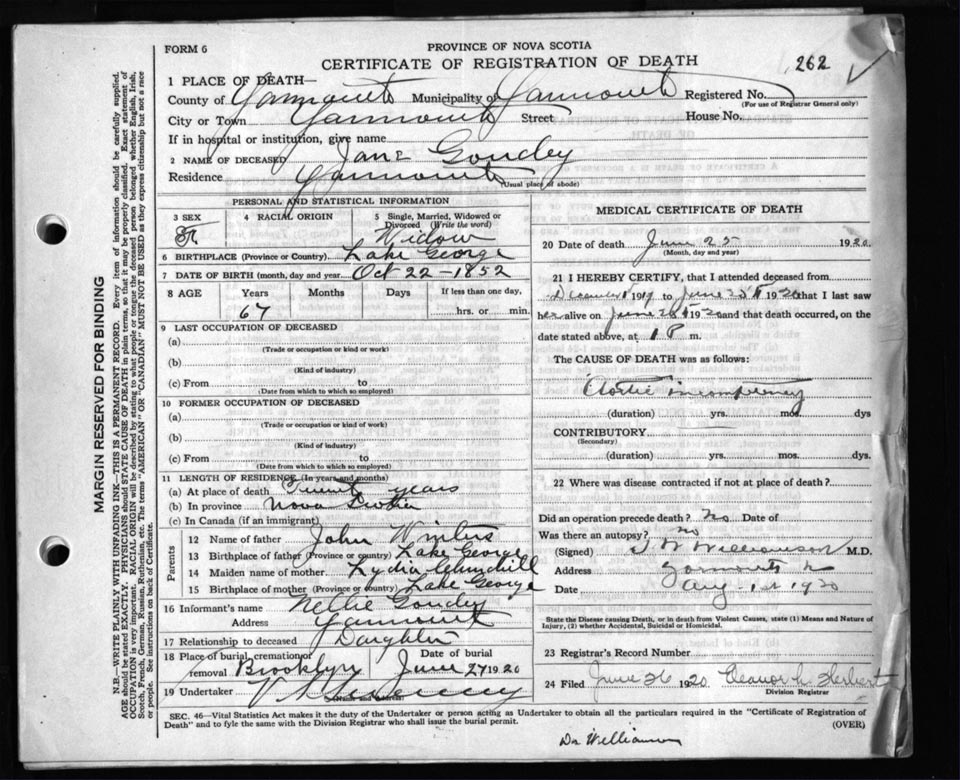 FORM 6
PROVINCE OF NOVA SCOTIA
CERTIFICATE OF REGISTRATION OF DEATH
262
1 PLACE OF DEATH—
County of Yarmouth Municipality of Yarmouth Registered No.
(For use of Registrar General only)
City or Town Yarmouth Street House No.
If in hospital or institution, give name
2 NAME OF DECEASED Jane Goudey
Residence Yarmouth
(Usual place of abode)
PERSONAL AND STATISTICAL INFORMATION
3 SEX
4 RACIAL ORIGIN
5 Single, Married, Widowed or Divorced (Write the word)
Widow
6 BIRTHPLACE (Province or Country) Lake George
7 DATE OF BIRTH (month, day and year) Oct 22-1852
8 AGE Years Months Days If less than one day,
67 hrs. or min.
9 LAST OCCUPATION OF DECEASED
(a)
(Trade or occupation or kind or work)
(b)
(Kind of industry)
(c) From to
(Date from which to which so employed)
10 FORMER OCCUPATION OF DECEASED
(a)
(Trade or occupation or kind of work)
(b)
(Kind of industry)
(c) From to
(Date from which to which so employed)
11 LENGTH OF RESIDENCE (In years and months)
(a) At place of death years
(b) In province Nova Scotia
(c) In Canada (if an immigrant)
Parents
12 Name of father John Winters
13 Birthplace of father (Province or country) Lake George
14 Maiden name of mother Lydia Churchill
15 Birthplace of mother (Province or country) Lake George
16 Informant's name Nellie Goudey
Address Yarmouth
17 Relationship to deceased Daughter
18 Place of burial, cremation or removal Brooklyn
Date of burial June 27 1920
19 Undertaker
MEDICAL CERTIFICATE OF DEATH
20 Date of death June 25 1920
(Month, day and year)
21 I HEREBY CERTIFY, that I attended deceased from
December 1919 to June 25 1920 that I last saw
her alive on June 1920 and that death occurred, on
date stated above, at 1 P m.
The CAUSE OF DEATH was as follows:
Aortic incompetency
(duration) yrs. mos. dys
CONTRIBUTORY
(Secondary)
(duration) yrs. mos. dys.
22 Where was disease contracted if not at place of death?
Did an operation precede death? No Date of
Was there an autopsy? no
(Signed) Williamson M.D.
Address Yarmouth
Date Aug 1st 1920
State the Disease causing Death, or in death from Violent Causes, state (1) Means and Nature of
Injury, (2) whether Accidental, Suicidal or Homicidal.
23 Registrar's Record Number
24 Filed June 26 1920 Eleanor L. Herbert
Division Registrar
SEC. 46—Vital Statistics Act makes it the duty of the Undertaker or person acting as Undertaker to obtain all the particulars required in the "Certificate of Registration of
Death" and to fyle the same with the Division Registrar who shall issue the burial permit.
(OVER)
Dr Williamson
MARGIN RESERVED FOR BINDING
N.B.—WRITE PLAINLY WITH UNFADING INK—THIS IS A PERMANENT RECORD. Every item of information should be carefully supplied.
AGE should be stated EXACTLY. PHYSICIANS should STATE CAUSE OF DEATH in plain terms, so that it may be properly classified. Exact statement of
OCCUPATION is very important. RACIAL ORIGIN will be described by stating to what people or tongue the deceased person belonged whether English, Irish,
Scotch, French, German, Russian, Ruthenian, etc. The terms "AMERICAN" OR "CANADIAN" MUST NOT BE USED as they express citizenship but not a race
or people. See instructions on back of Certificate.